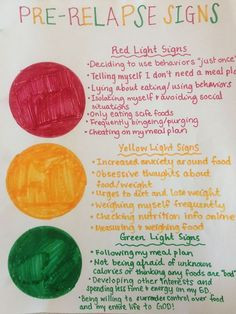 PRE-RELAPSE SIGNS
Red Light Signs
• Deciding to use behaviors "just once"
• Telling myself I don't need a meal pla
• Lying about eating/using behaviors
• Isolating myself + avoiding social
situations
• Only eating safe foods
• Frequently bingeing/purging
• Cheating on my meal plan
Yellow Light Signs
• Increased anxiety around food
• Obsessive thoughts about
food/weight
• Urges to diet and lose weight
• Weighing myself frequently
• Checking nutrition info online
• Measuring + weighing food
Green Light Signs
• Following my meal plan
• Not being afraid of unknown
calories or thinking any foods are "bad"
• Developing other interests and
spending less time + energy on my ED.
• Being willing to surrender control over food
and my entire life to GOD!